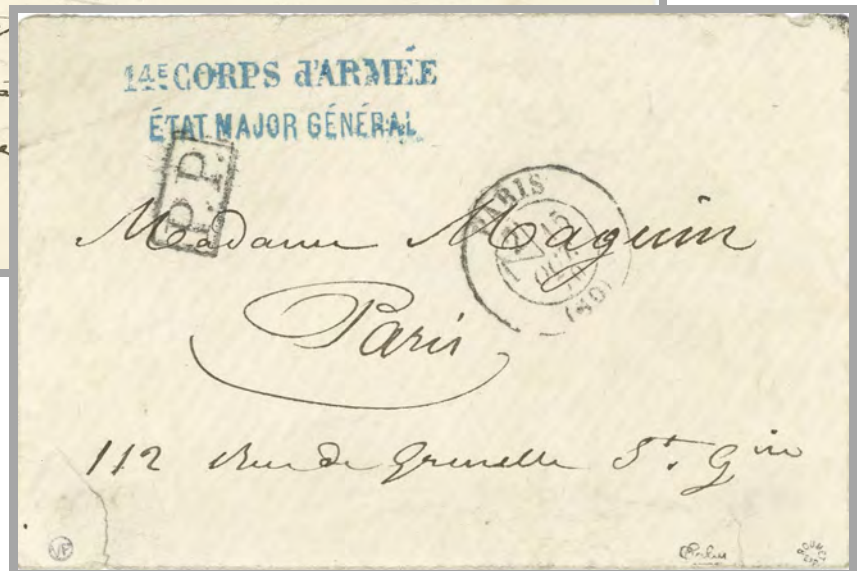 14E CORPS d'ARMÉE
ÉTAT MAJOR GÉNÉRAL
P.P.
PARIS
(SC)
Madame Maguin
Paris
112 Rue de Grenelle St. Gin